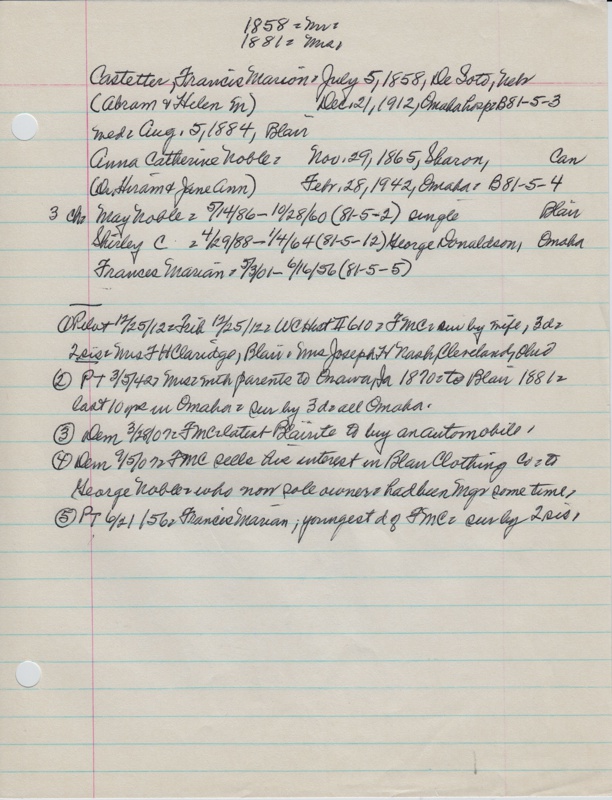 1858 = Mr =
1881 = Mrs,
Castetter, Francis Marion = July 5, 1858, De Soto, Nebr
(Abram & Helen M) Dec. 21, 1912, Omaha hosp = B81-5-3
med = Aug. 5, 1884, Blair
Anna Catherine Noble = Nov. 29, 1865, Sharon, Can
(Dr. Hiram & Jane Ann) Febr. 28, 1942, Omaha = B81-5-4
3 chn May Noble = 5/14/86 - 10/28/60 (81-5-2) single Blair
Shirley C = 4/29/88 - 1/4/64 (81-5-12) George Donaldson, Omaha
Frances Marian = 5/3/01 - 6/16/56 (81-5-5)
① Pilot 12/25/12 = 12/25/12 = WC Hist II 610 = FMC = sur by wife, 3 d =
2 sis = Mrs F H Claridge, Blair = Mrs Joseph H Nash, Cleveland, Ohio
② PT 3/5/42 = Mrs = with parents to Onawa, Ia 1870 = to Blair 1881 =
last 10 yrs in Omaha = sur by 3 d = all Omaha.
③ Dem 3/28/07 = FMC = latest Blairite to buy an automobile,
④ Dem 9/5/07 = FMC sells his interest in Blair Clothing Co = to
George Noble = who now sole owner = had been Mgr some time,
⑤ PT 6/21/56 = Francis Marian, youngest d of FMC = sur by 2 sis,